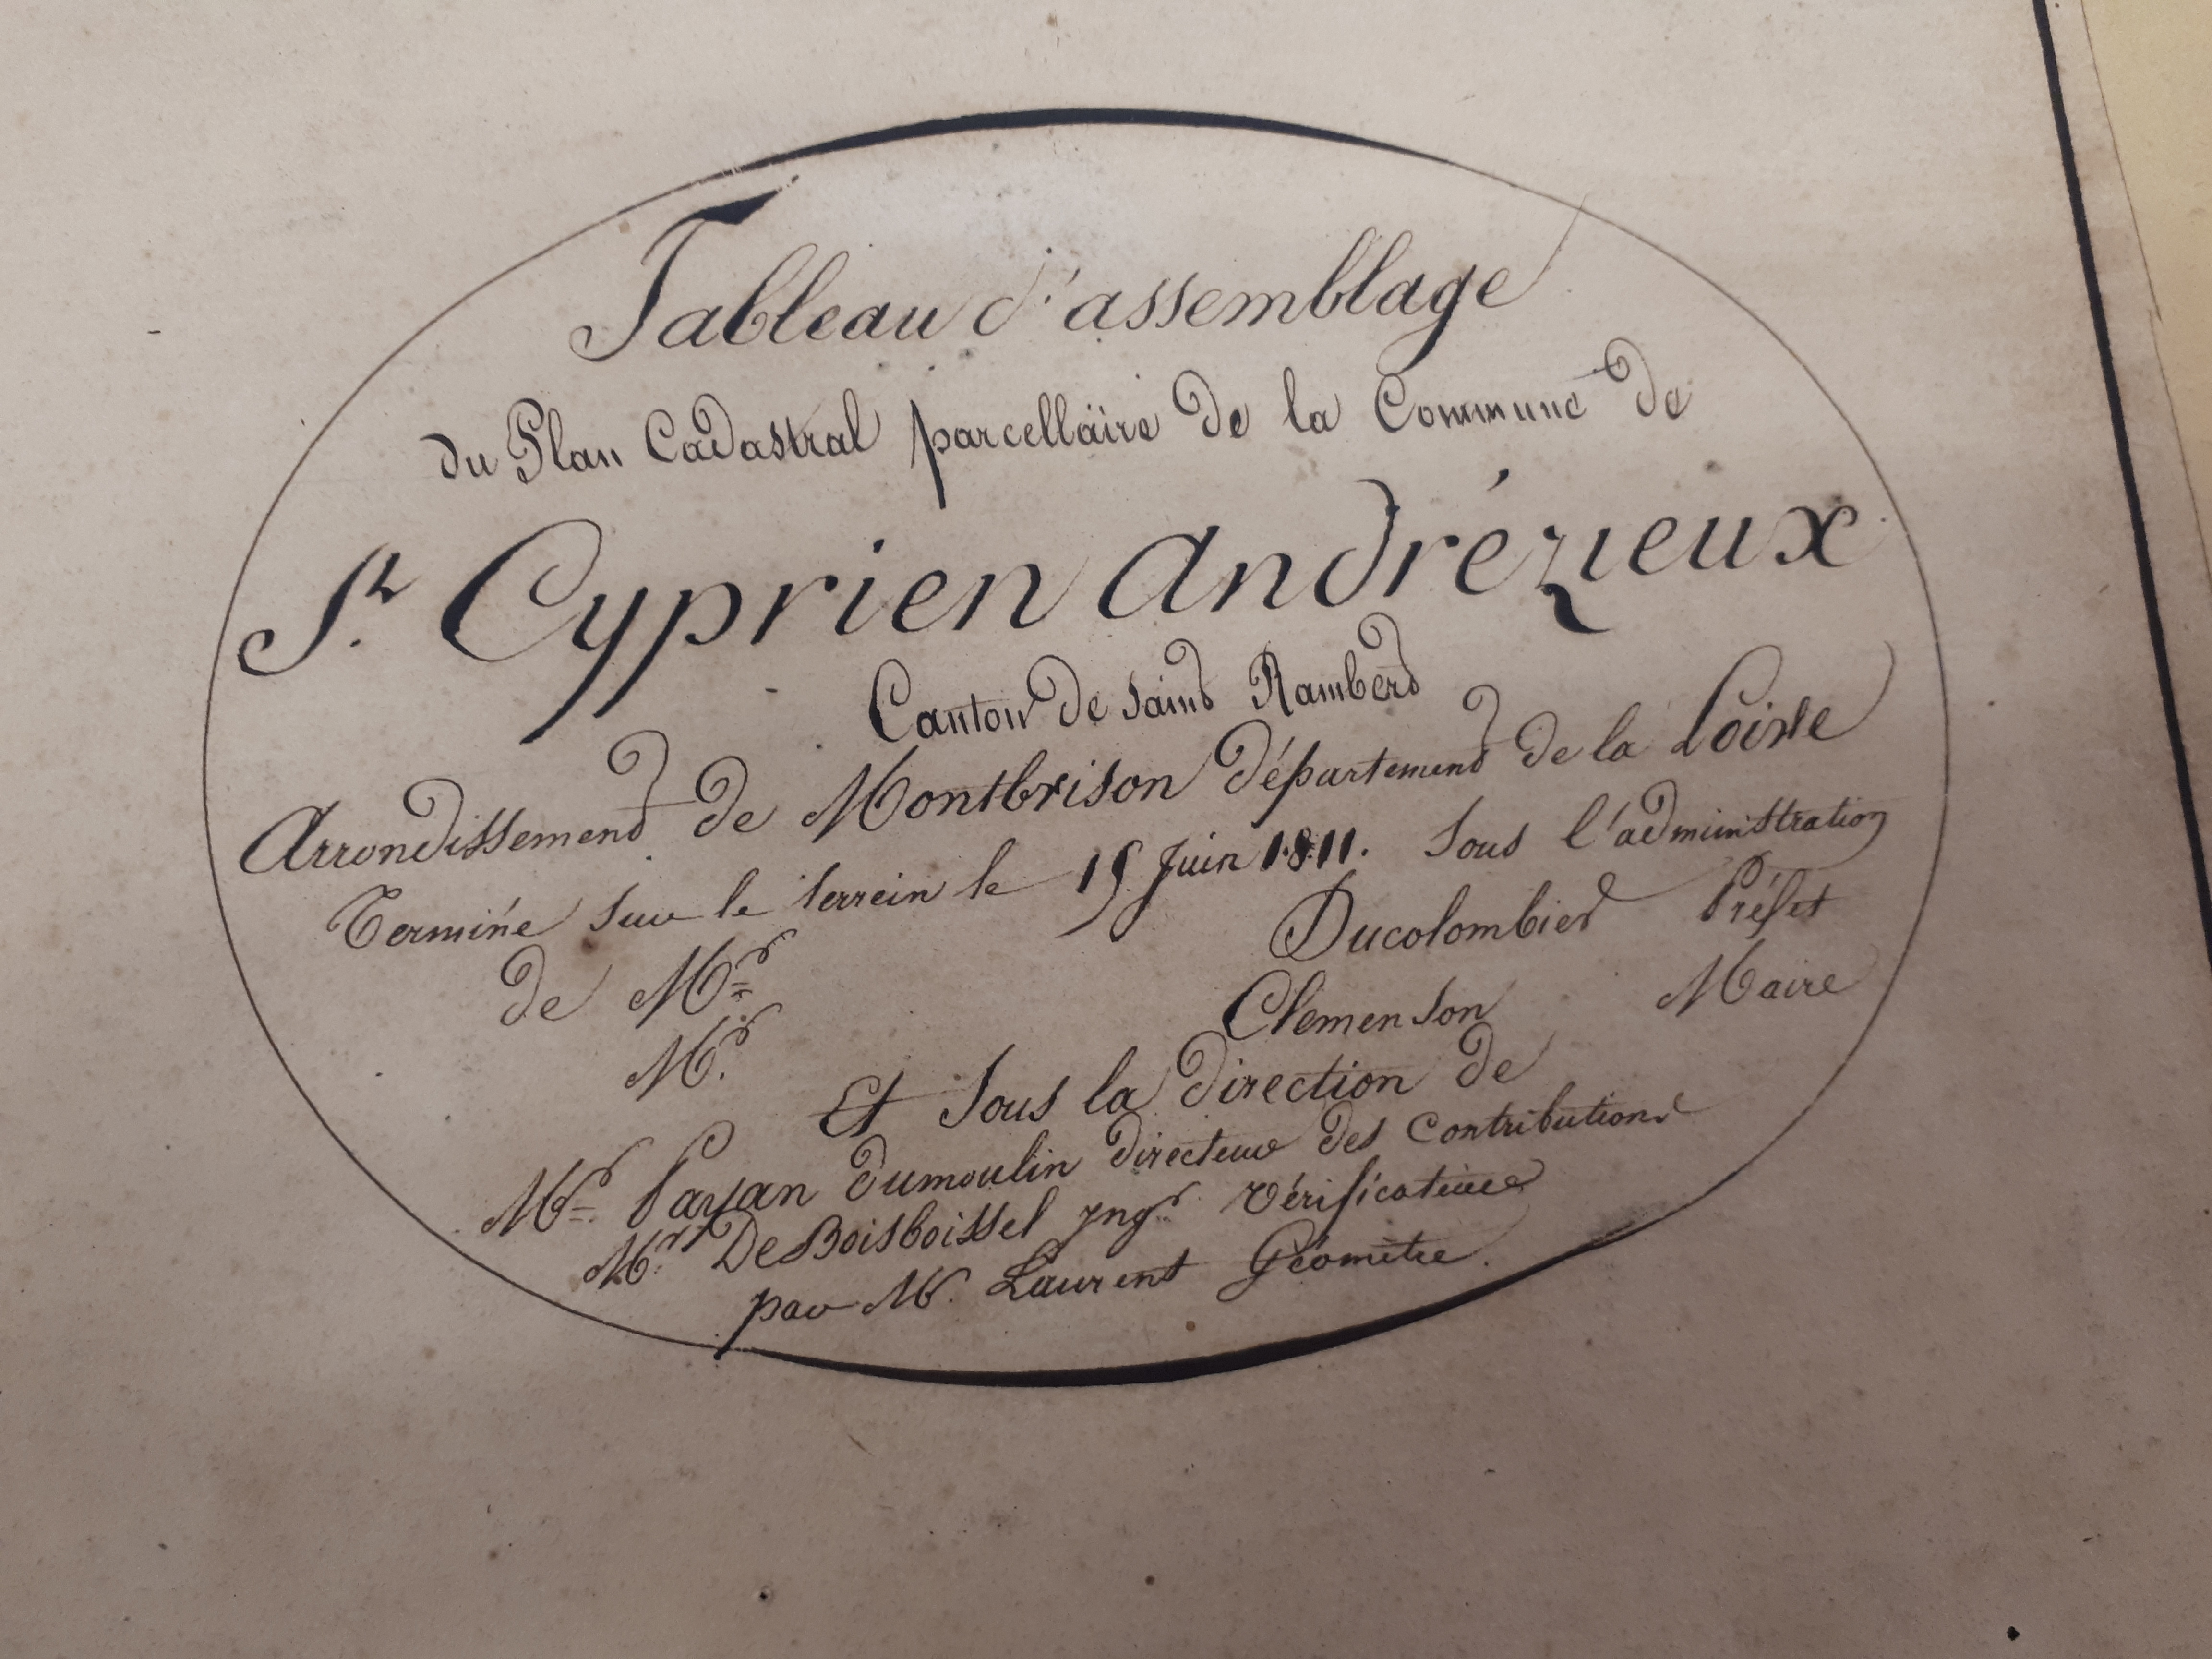 Tableau d'assemblage
du Plan Cadastral parcellaire de la Commune de
St. Cyprien Andrézieux
Canton de Saint Rambert
Arrondissement de Montbrison département de la Loire
Terminé sur le terrein le 15 Juin 1811. Sous l'administration
de Mr Ducolombier Préfet
Mr. Clemenson Maire
Et Sous la direction de
Mr. Payan dumoulin directeur des contributions
Mr. De Boisboissel yngr. vérificateur
par M. Laurent Géomètre.